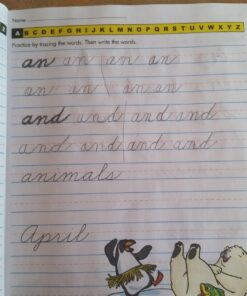 Name
A B C D E F G H I J K L M N O P Q R S T U V W X Y Z
Practice by tracing the words. Then write the words.
an an an an
an an an an
and and and and
and and and and
animals
April